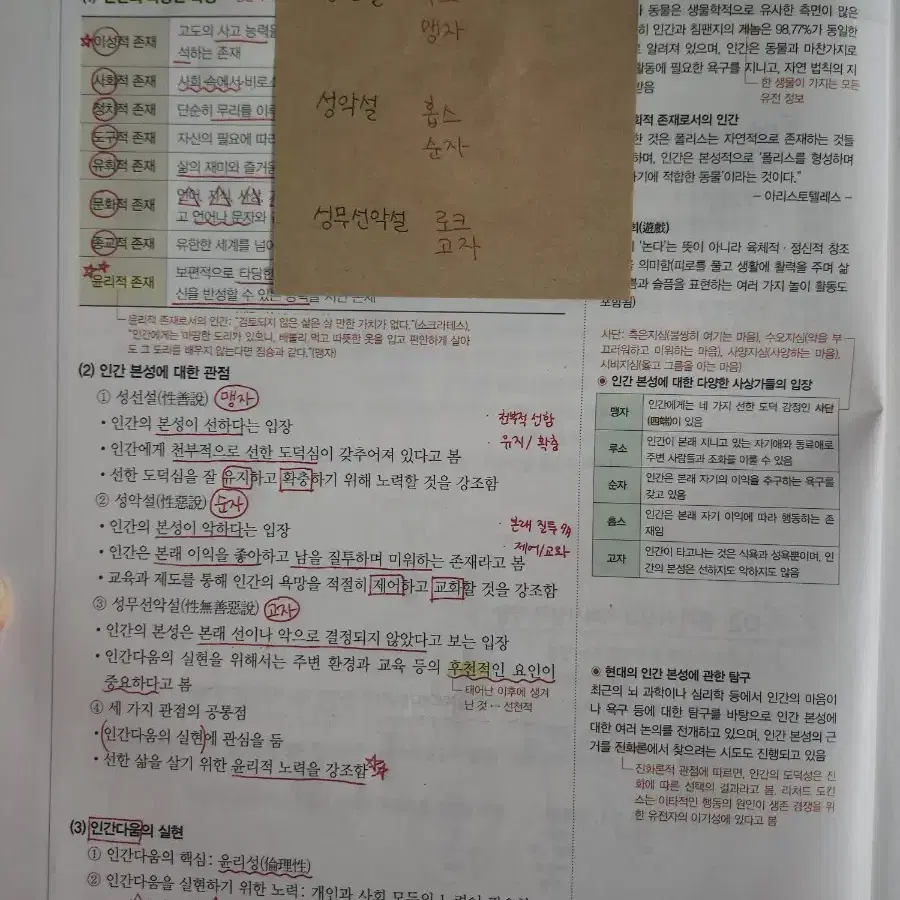 맹자
성악설 홉스
순자
성무선악설 로크
고자
이성적 존재
고도의 사고 능력을
석하는 존재
사회적 존재
사회 속에서 비로소
정치적 존재
단순히 무리를 이루
도구적 존재
자신의 필요에 따라
유희적 존재
삶의 재미와 즐거움
문화적 존재
언어, 지식, 사상,
고 언어나 문자와
종교적 존재
유한한 세계를 넘어
윤리적 존재
보편적으로 타당한
신을 반성할 수 있는
윤리적 존재로서의 인간: "검토되지 않은 삶은 살 만한 가치가 없다."(소크라테스),
"인간에게는 마땅한 도리가 있으니, 배불리 먹고 따뜻한 옷을 입고 편안하게 살아
도 그 도리를 배우지 않는다면 짐승과 같다."(맹자)
(2) 인간 본성에 대한 관점
① 성선설(性善說) 맹자
• 인간의 본성이 선하다는 입장
· 천부적 선함
• 인간에게 천부적으로 선한 도덕심이 갖추어져 있다고 봄
· 유지/확충
• 선한 도덕심을 잘 유지하고 확충하기 위해 노력할 것을 강조함
② 성악설(性惡說) 순자
• 인간의 본성이 악하다는 입장
· 본래 질투
• 인간은 본래 이익을 좋아하고 남을 질투하며 미워하는 존재라고 봄
· 제어/교화
• 교육과 제도를 통해 인간의 욕망을 적절히 제어하고 교화할 것을 강조함
③ 성무선악설(性無善惡說) 고자
• 인간의 본성은 본래 선이나 악으로 결정되지 않았다고 보는 입장
• 인간다움의 실현을 위해서는 주변 환경과 교육 등의 후천적인 요인이
중요하다고 봄
태어난 이후에 생겨
난 것 ↔ 선천적
④ 세 가지 관점의 공통점
• (인간다움의 실현)에 관심을 둠
• 선한 삶을 살기 위한 윤리적 노력을 강조함
(3) 인간다움의 실현
① 인간다움의 핵심: 윤리성(倫理性)
② 인간다움을 실현하기 위한 노력: 개인과 사회
동물은 생물학적으로 유사한 측면이 많은
히 인간과 침팬지의 게놈은 98.77%가 동일한
알려져 있으며, 인간은 동물과 마찬가지로
활동에 필요한 욕구를 지니고, 자연 법칙의 지
받음
한 생물이 가지는 모든
유전 정보
적 존재로서의 인간
한 것은 폴리스는 자연적으로 존재하는 것들
하며, 인간은 본성적으로 '폴리스를 형성하며
기에 적합한 동물'이라는 것이다."
– 아리스토텔레스 –
희(遊戲)
'논다'는 뜻이 아니라 육체적·정신적 창조
의미함(피로를 풀고 생활에 활력을 주며 삶
과 슬픔을 표현하는 여러 가지 놀이 활동도
포함됨)
사단: 측은지심(불쌍히 여기는 마음), 수오지심(악을 부
끄러워하고 미워하는 마음), 사양지심(사양하는 마음),
시비지심(옳고 그름을 아는 마음)
◉ 인간 본성에 대한 다양한 사상가들의 입장
맹자
인간에게는 네 가지 선한 도덕 감정인 사단
(四端)이 있음
루소
인간이 본래 지니고 있는 자기애와 동료애로
주변 사람들과 조화를 이룰 수 있음
순자
인간은 본래 자기의 이익을 추구하는 욕구를
갖고 있음
홉스
인간은 본래 자기 이익에 따라 행동하는 존
재임
고자
인간이 타고나는 것은 식욕과 성욕뿐이며, 인
간의 본성은 선하지도 악하지도 않음
◉ 현대의 인간 본성에 관한 탐구
최근의 뇌 과학이나 심리학 등에서 인간의 마음이
나 욕구 등에 대한 탐구를 바탕으로 인간 본성에
대한 여러 논의를 전개하고 있으며, 인간 본성의 근
거를 진화론에서 찾으려는 시도도 진행되고 있음
진화론적 관점에 따르면, 인간의 도덕성은 진
화에 따른 선택의 결과라고 봄. 리처드 도킨
스는 이타적인 행동의 원인이 생존 경쟁을 위
한 유전자의 이기성에 있다고 봄